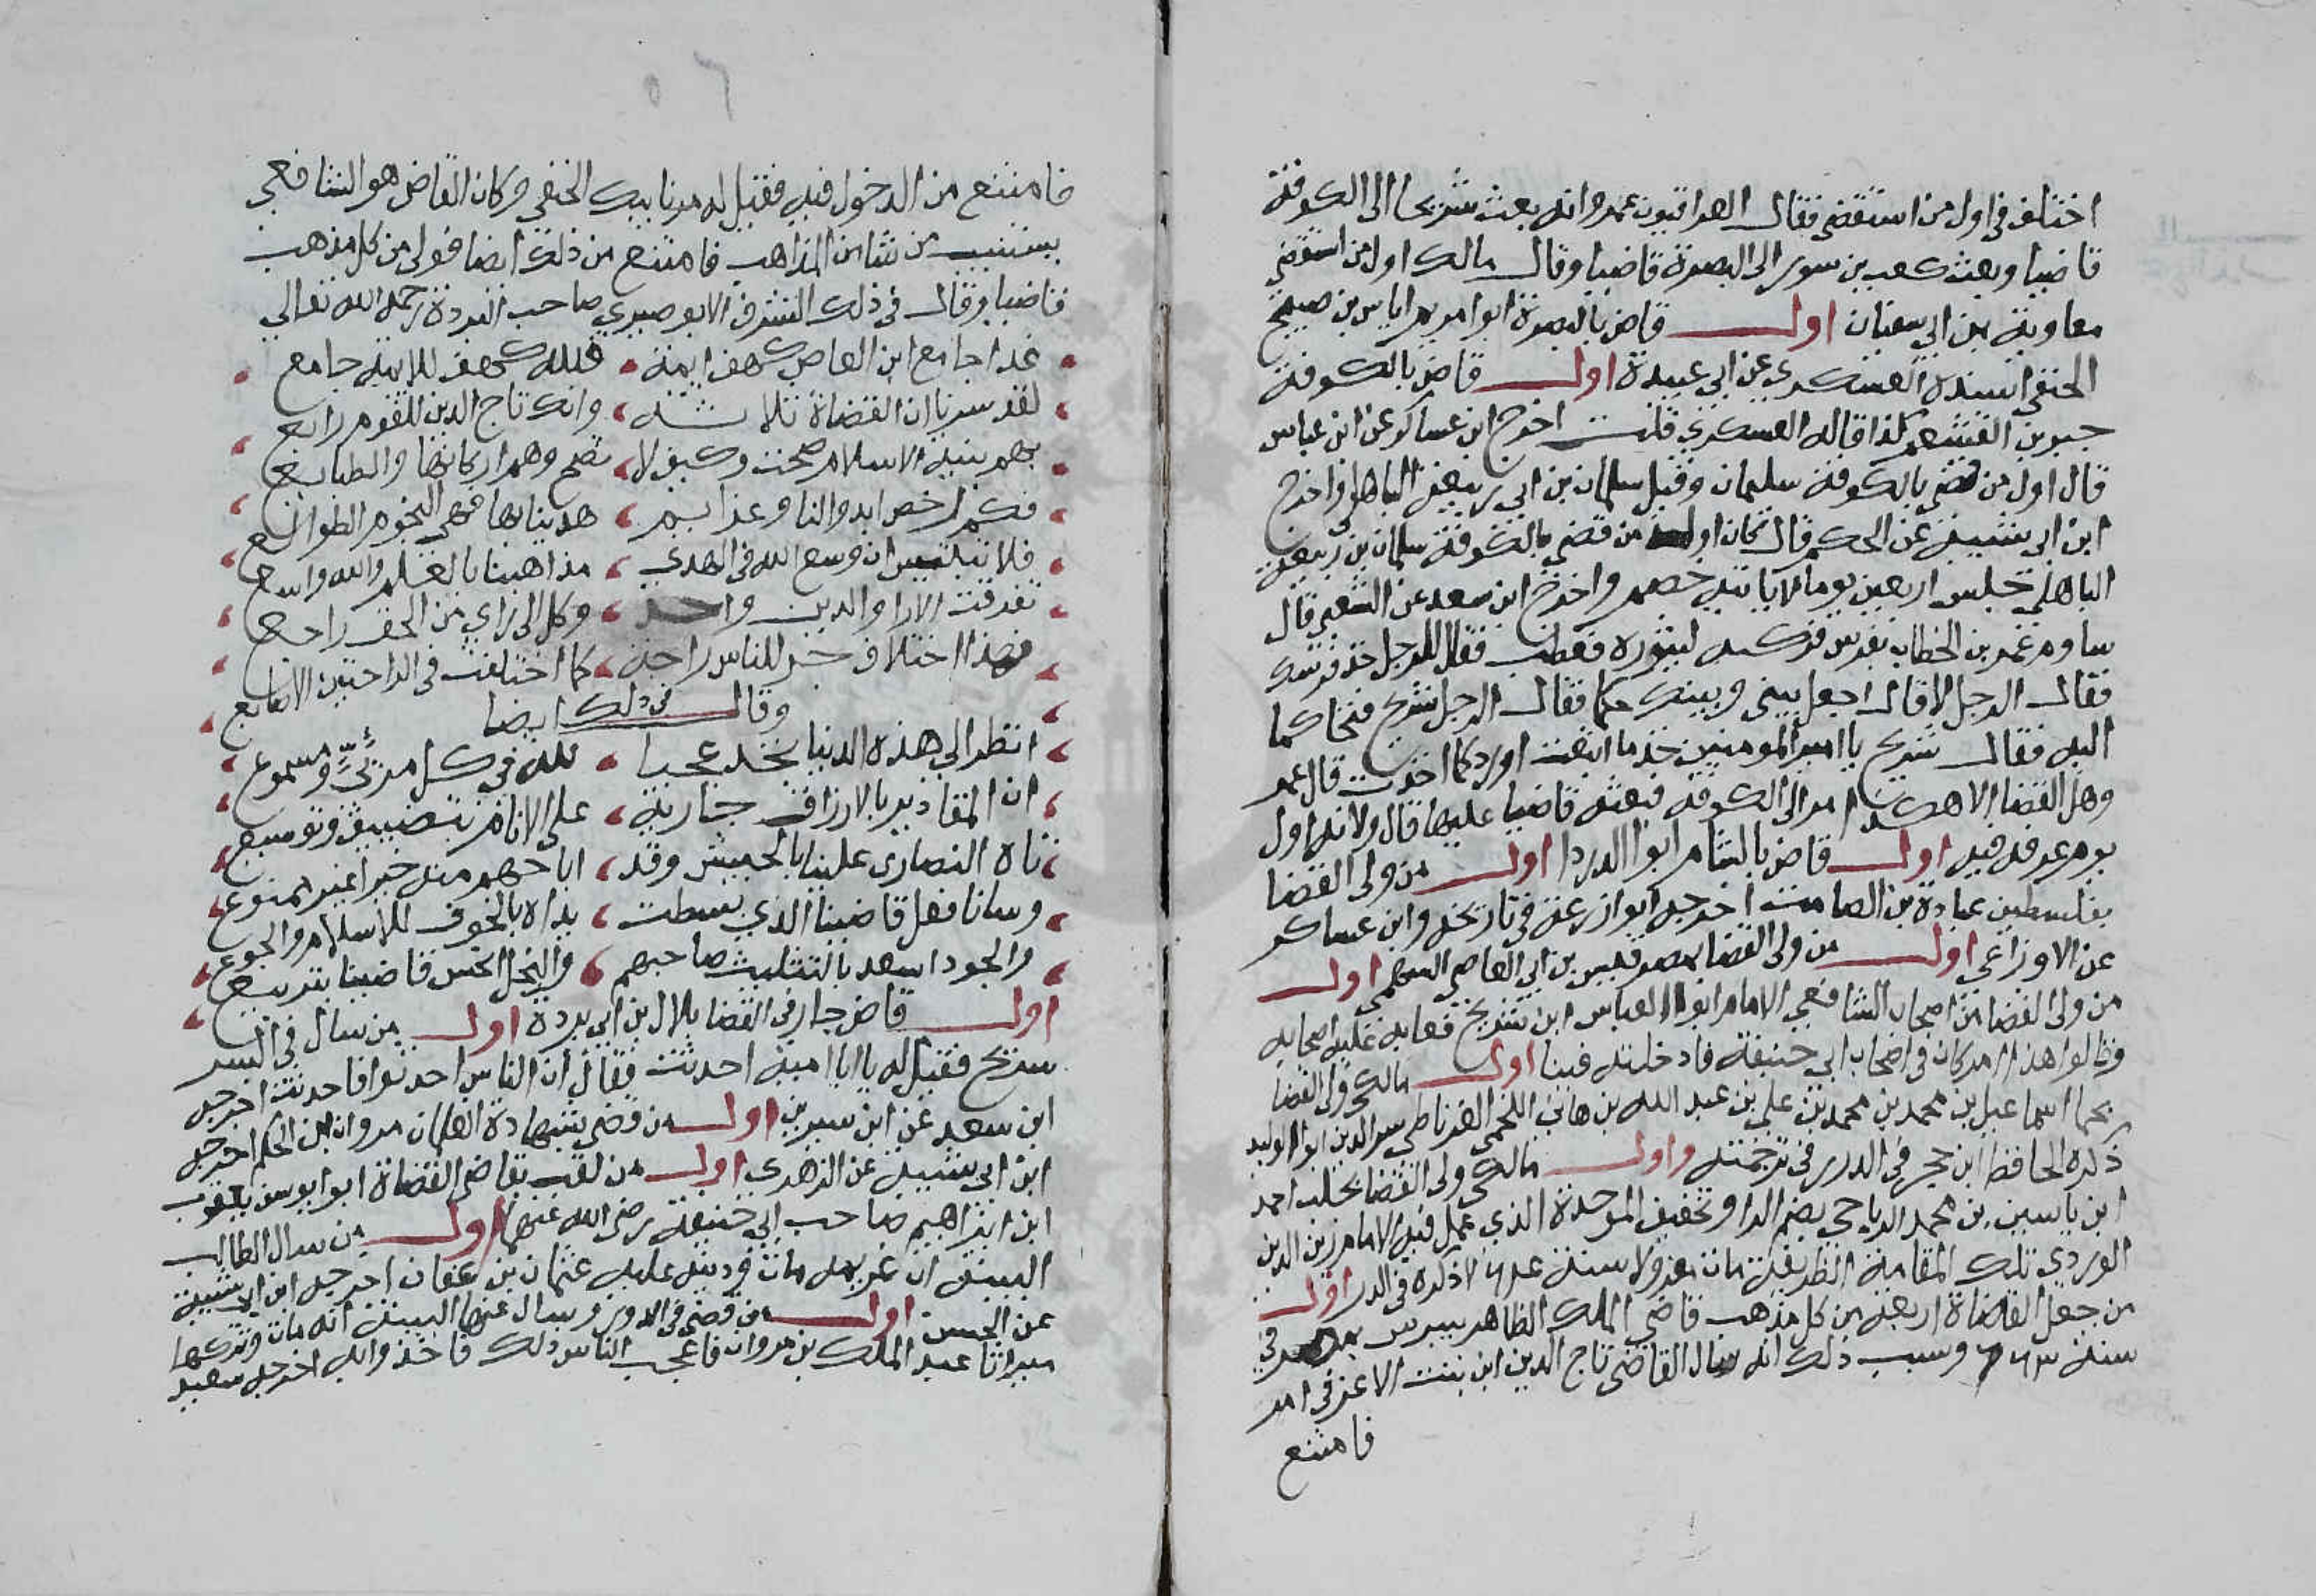 اختلف في اول من استقضى فقال العراقيون عمر وانه بعث شريحا الى الكوفة
قاضيا وبعث كعب بن سور الى البصرة قاضيا وقال مالك اول من استقضى
معاوية بن ابي سفيان اول قاض بالبصرة ابو امريم اياس بن صبيح
الحنفي اسنده العسكري عن ابي عبيدة اول قاض بالكوفة
جبر بن القشعم كذا قاله العسكري قلت اخرج ابن عساكر عن ابن عباس
قال اول من قضى بالكوفة سليمان وقيل سلمان بن ابي ربيعة الباهلي واخرج
ابن ابي شيبة عن الحكم قال كان اول من قضى بالكوفة سلمان بن ربيعة
الباهلي جلس اربعين يوما لا ياتيه خصم واخرج ابن سعد عن الشعبي قال
ساوم عمر بن الخطاب بفرس فركبه ليشوره فعطب فقال للرجل خذ فرسك
فقال الرجل لا قال اجعل بيني وبينك حكما فقال الرجل شريح فتحاكما
اليه فقال شريح يا امير المومنين خذ ما ابتعت او رد كما اخذت قال عمر
وهل القضا الا هكذا امر الى الكوفة فبعثه قاضيا عليها قال ولانه اول
يوم عرفه فيه اول قاض بالشام ابو الدردا اول من ولي القضا
بفلسطين عبادة بن الصامت اخرجه ابو زرعة في تاريخه وابن عساكر
عن الاوزاعي اول من ولي القضا بمصر قيس بن ابي العاصي السهمي اول
من ولي القضا من اصحاب الشافعي الامام ابو العباس ابن شريح فعابه عليه اصحابه
وقالوا هذا امر كان في اصحاب ابي حنيفة فادخلته فينا اول مالكي ولي القضا
بحما اسماعيل بن محمد بن محمد بن علي بن عبد الله بن هاني اللخمي الغرناطي سر الدين ابو الوليد
ذكره الحافظ ابن حجر في الدرر في ترجمته واول مالكي ولي القضا بحلب احمد
ابن ياسين بن محمد الرباحي بضم الرا وتخفيف الموحدة الذي عمل فيه الامام زين الدين
الوردي تلك المقامة الظريفة مات معزولا سنة ذكره في الدرر اول
من جعل القضاة اربعة من كل مذهب قاضي الملك الظاهر بيبرس بمصر في
سنة ٦٦٣ وسبب ذلك انه سال القاضي تاج الدين ابن بنت الاعز في امر
فامتنع
٥٦
فامتنع من الدخول فيه فقيل له مر نايبك الحنفي وكان القاضي هو الشافعي
يستنيب من شا من المذاهب فامتنع من ذلك ايضا فولى من كل مذهب
قاضيا وقال في ذلك الشرف الابوصيري صاحب البردة رحمه الله تعالى
غدا جامع ابن العاص كهف ايمة فلله كهف للايمة جامع
لقد سرنا ان القضاة ثلاثة وانك تاج الدين للقوم رابع
بهم بنية الاسلام صحت وكيف لا تصح وهم اركانها والطبايع
فكم رخص ابدوا لنا وعزايم هدينا بها فهي النجوم الطوالع
فلا تبتئس ان وسع الله في الهدى مذاهبنا بالعلم والله واسع
تفرقت الارا والدين واحد وكل الى راي من الحق راجع
فهذا اختلاف جر للناس راحة كما اختلفت في الراحتين الاصابع
وقال في ذلك ايضا
انظر الى هذه الدنيا تجد عجبا لله في كل مرئي ومسموع
ان المقادير بالارزاق جارية على الانام بتضييق وتوسيع
تاه النصارى علينا بالحبيس وقد اباحهم منه خيرا غير ممنوع
وسانا فعل قاضينا الذي بسطت يداه بالخوف للاسلام والجوع
والجود اسعد بالتثليث صاحبهم والبخل انحس قاضينا بتربيع
اول قاض جار في القضا بلال بن ابي بردة اول من سال في السر
شريح فقيل له يا ابا امية احدثت فقال ان الناس احدثوا فاحدثت اخرجه
ابن سعد عن ابن سيرين اول من قضى بشهادة الغلمان مروان بن الحكم اخرجه
ابن ابي شيبة عن الزهري اول من لقب بقاضي القضاة ابو يوسف يعقوب
ابن ابراهيم صاحب ابي حنيفة رضي الله عنهما اول من سال الطالب
البينة ان غريمه مات ودينه عليه عثمان بن عفان اخرجه ابن ابي شيبة
عن الحسن اول من قضى في الدور وسال عنها البينة انه مات وتركها
ميراثا عبد الملك بن مروان فاعجب الناس ذلك فاخذوا به اخرجه سعيد